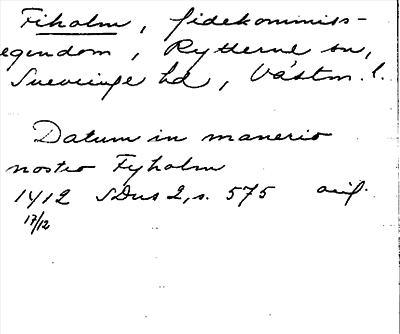 Fiholm, fidekommiss-
egendom, Rytterne sn,
Snevringe hd, Västm. l.
Datum in manerio
nostro Fyholm
1412 SDns 2, s. 575 orig.
17/12